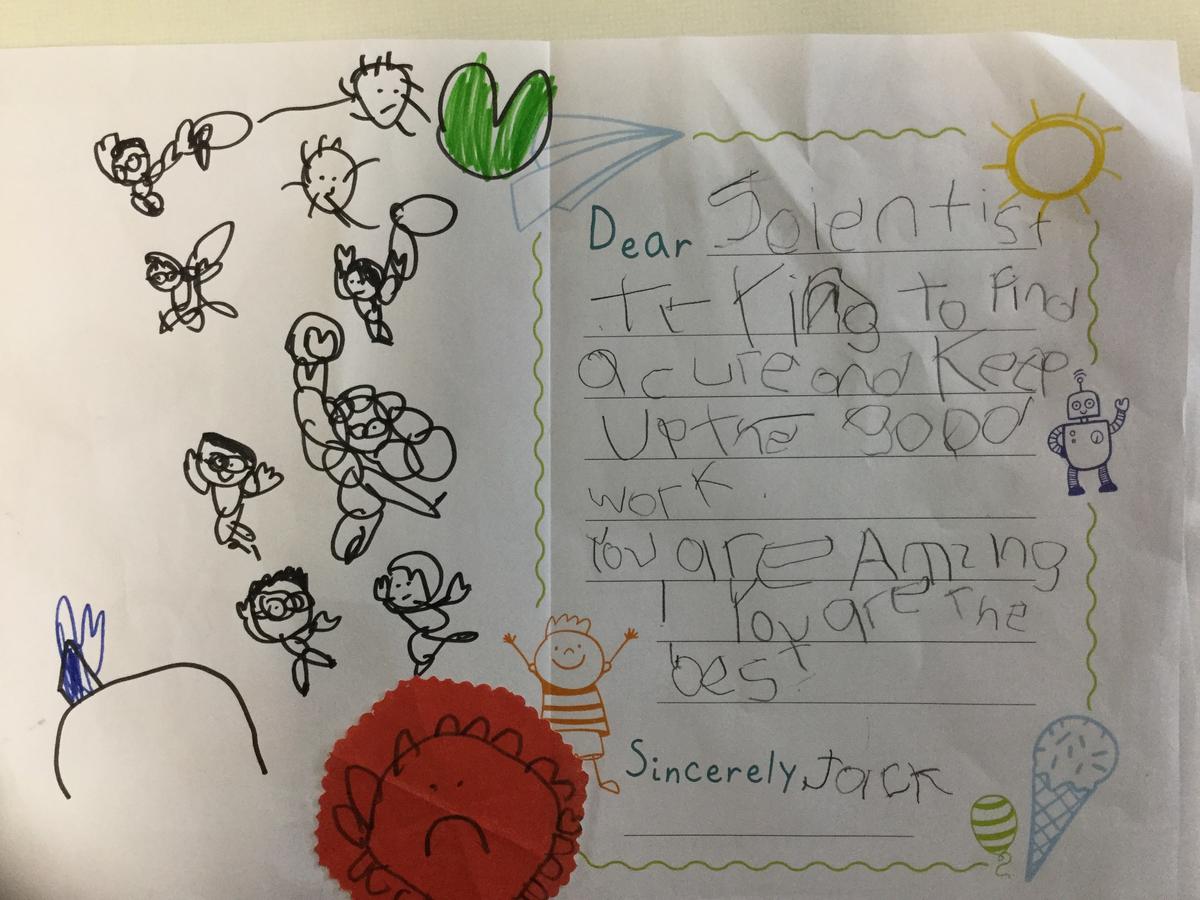 Dear Scientist
tr- King to Find
a cure and Keep
Up the good
work.
You are Amzing
! You are The
best
Sincerely, Jack